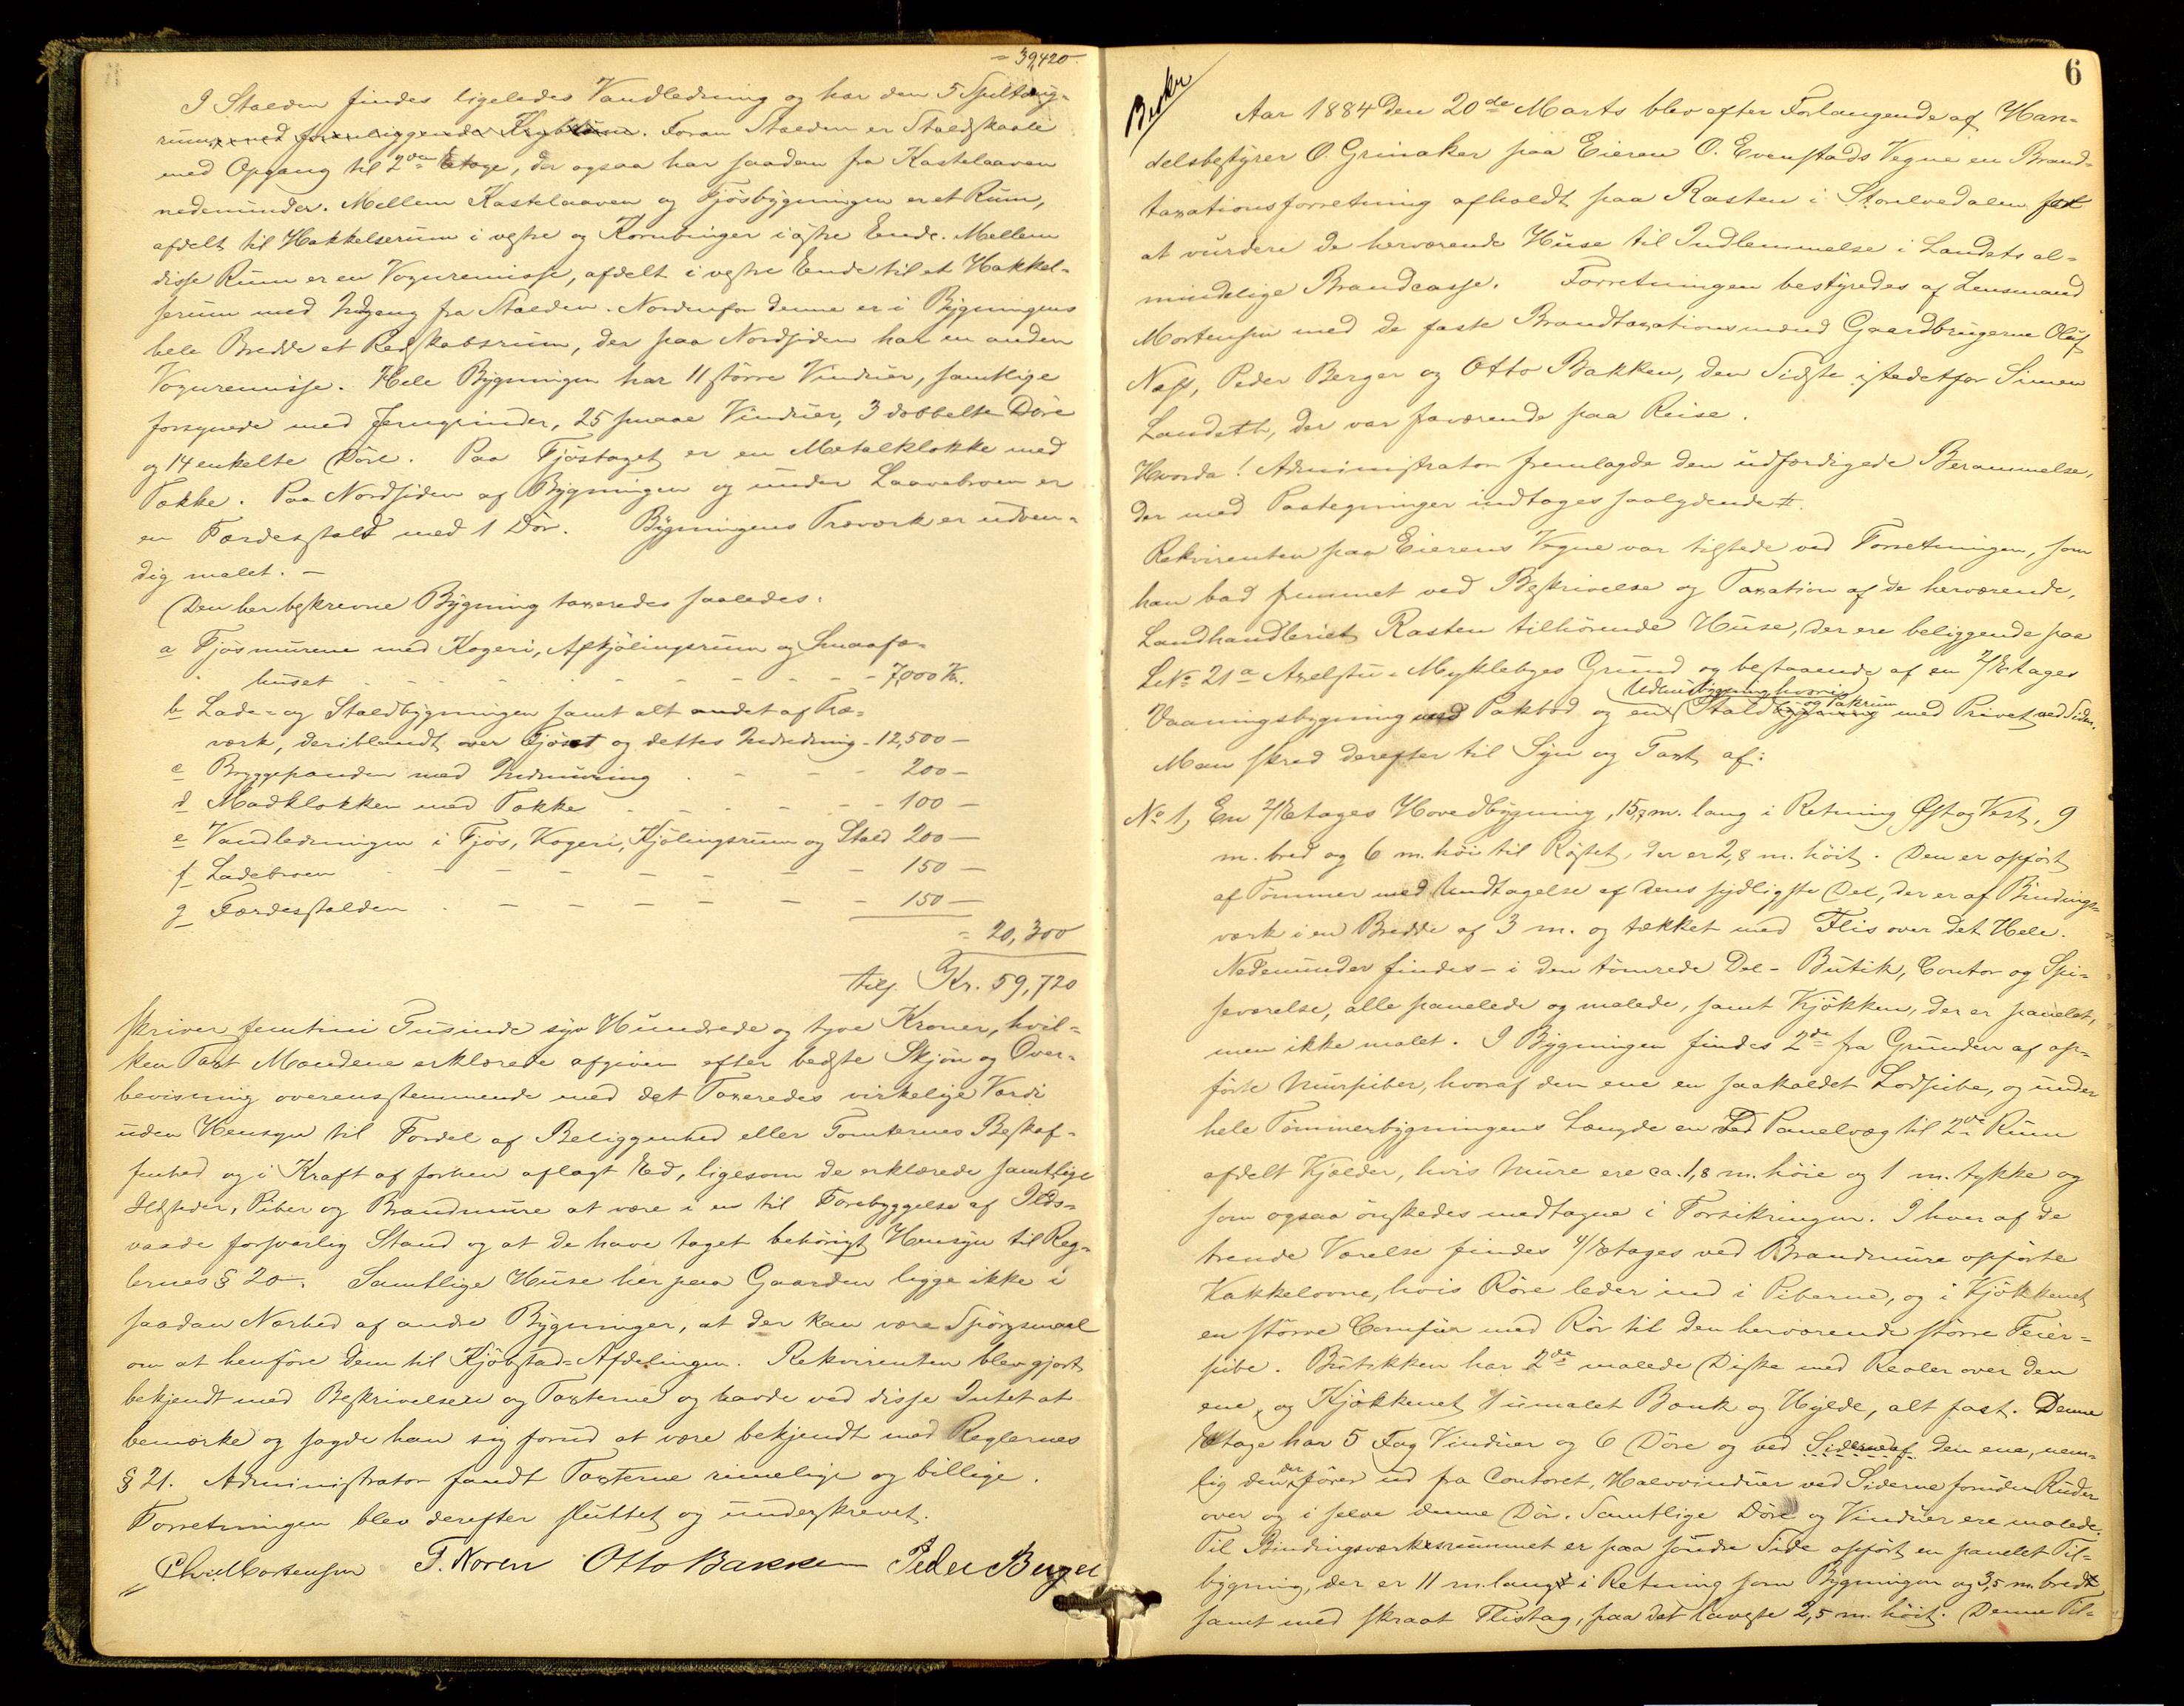 = 39,420.
I Stalden findes ligeledes Vandledning og har den 5 Spiltoug-
rum, med foranliggende Krybber. Foran Stalden er Staldskaale
med Opgang til 2den Etage, der ogsaa har saadan fra Kastelaaven
nedenunder. Mellem Kastelaaven og Fjøsbygningen er et Rum,
afdelt til Hakkelserum i vestre og Kornbinger i østre Ende. Mellem
disse Rum er en Vognremisse, afdelt i vestre Ende til et Hakkel-
serum med Indgang fra Stalden. Nordenfor denne er i Bygningens
hele Bredde et Redskabsrum, der paa Nordsiden har en anden
Vognremisse. Hele Bygningen har 11 større Vinduer, samtlige
forsynede med Jerngrinder, 25 smaae Vinduer, 3 dobbelte Døre
og 14 enkelte Døre. Paa Fjøstaget er en Metalklokke med
Tække. Paa Nordsiden af Bygningen og under Laavebroen er
en Færdesstald med 1 Dør. Bygningens Træværk er udven-
dig malet. –
Den her beskrevne Bygning taxeredes saaledes:
a Fjøsmurene med Kogeri, Afkjølingsrum og Smaafæ-
huset - - - - - - - - - 7,000 Kr.
b Lade- og Staldbygningen samt alt andet af Træ-
værk, deriblandt over Fjøset og dettes Indredning - 12,500 –
c Bryggepanden med Indmuring - - - - 200 –
d Madklokken med Tække - - - - - - 100 –
e Vandledningen i Fjøs, Kogeri, Kjølingsrum og Stald 200 –
f Ladebroen - - - - - - - 150 –
g Færdesstalden - - - - - - 150 –
= 20,300
tils. Kr. 59,720
skriver femtini Tusinde syv Hundrede og tyve Kroner, hvil-
ken Taxt Mændene erklærede afgiven efter bedste Skjøn og Over-
bevisning overensstemmende med det Taxeredes virkelige Værdi
uden Hensyn til Fordel af Beliggenhed eller Tomternes Beskaf-
fenhed og i Kraft af forhen aflagt Ed, ligesom de erklærede samtlige
Ildsteder, Piber og Brandmure at være i en til Forebyggelse af Ilds-
vaade forsvarlig Stand og at de have taget behørigt Hensyn til Reg-
lernes § 20. Samtlige Huse her paa Gaarden ligge ikke i
saadan Nærhed af andre Bygninger, at der kan være Spørgsmaal
om at henføre dem til Kjøbstad-Afdelingen. Rekvirenten blev gjort
bekjendt med Beskrivelsen og Taxterne og havde ved disse Intet at
bemærke og sagde han sig forud at være bekjendt med Reglernes
§ 21. Administrator fandt Taxterne rimelige og billige.
Forretningen blev derefter sluttet og underskrevet.
Chr. Mortensen T. Noren Otto Bakken Peder Berger
6
Beskr
Aar 1884 den 20de Marts blev efter Forlangende af Han-
delsbestyrer O. Grinaker paa Eieren O. Evenstads Vegne en Brand-
taxationsforretning afholdt paa Rasten i Storelvedalen for
at vurdere de herværende Huse til Indlemmelse i Landets al-
mindelige Brandcasse. Forretningen bestyredes af Lensmand
Mortensen med de faste Brandtaxationsmænd Gaardbrugerne Oluf
Næss, Peder Berger og Otto Bakken, den Sidste istedetfor Simen
Landeth, der var fraværende paa Reise.
Hvorda! Administrator fremlagde den udfærdigede Berammelse,
der med Paategninger indtages saalydende #.
Rekvirenten paa Eierens Vegne var tilstede ved Forretningen, som
han bad fremmet ved Beskrivelse og Taxation af de herværende,
Landhandleriet Rasten tilhørende Huse, der ere beliggende paa
LNo 21a Axelstu-Myklebyes Grund og bestaaende af en 2/Etages
Udhusbygning hvori og Pakrum
Vaaningsbygning med Pakbod og en Staldbygning med Privet ved Siden.
Man skred derefter til Syn og Taxt af:
No 1, En 2/Etages Hovedbygning, 15,7 m. lang i Retning Øst og Vest, 9
m. bred og 6 m. høi til Røstet, der er 2,8 m. høit. Den er opført
af Tømmer med Undtagelse af dens sydligste Del, der er af Bindings-
værk i en Bredde af 3 m. og tækket med Flis over det Hele.
Nedenunder findes – i den tømrede Del – Butik, Contor og Spi-
seværelse, alle panelede og malede, samt Kjøkken, der er panelet,
men ikke malet. I Bygningen findes 2de fra Grunden af op-
førte Murpiber, hvoraf den ene en saakaldet Lodpibe, og under
hele Tømmerbygningens Længde en ved Panelvæg til 2de Rum
afdelt Kjælder, hvis Mure ere ca. 1,8 m. høie og 1 m. tykke og
som ogsaa ønskedes medtagne i Forsikringen. I hver af de
trende Værelse findes 4/Etages ved Brandmure opførte
Kakkelovne, hvis Røre leder ind i Piberne, og i Kjøkkenet
en større Comfur med Rør til den herværende større Feier-
pibe. Butikken har 2de malede Diske med Reoler over den
ene, og Kjøkkenet 1/umalet Bænk og Hylde, alt fast. Denne
Etage har 5 Fag Vinduer og 6 Døre og ved Siderne af den ene, nem-
lig den der fører ud fra Contoret, Halvvinduer ved Siderne foruden Ruder
over og i selve denne Dør. Samtlige Døre og Vinduer ere malede.
Til Bindingsværksrummet er paa søndre Side opført en panelet Til-
bygning, der er 11 m. lang i Retning som Bygningen og 3,5 m. bred
samt med skraat Flistag, paa det laveste 2,5 m. høit. Denne Til-